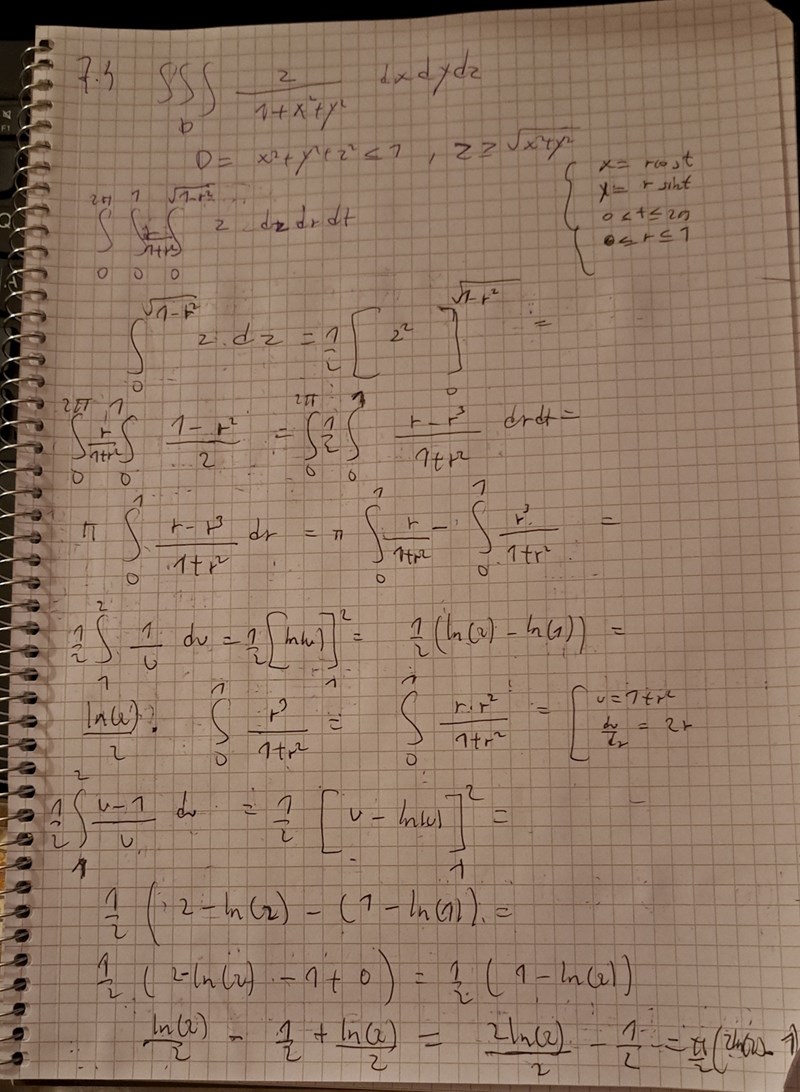 7.4 ∫∫∫_D z/(1+x²+y²) dxdydz
D = x²+y²+z² ≤ 1 , z ≥ √(x²+y²)
{ x = r cos t
y = r sin t
0 < t ≤ 2π
0 ≤ r ≤ 1
∫_0^{2π} ∫_0^1 r/(1+r²) ∫_0^{√(1-r²)} z dz dr dt
∫_0^{√(1-r²)} z · dz = 1/2 [ z² ]_0^{√(1-r²)} =
∫_0^{2π} r/(1+r²) ∫_0^1 (1-r²)/2 = ∫_0^{2π} 1/2 ∫_0^1 (r-r³)/(1+r²) drdt =
π ∫_0^1 (r-r³)/(1+r²) dr = π ∫_0^1 r/(1+r²) - ∫_0^1 r³/(1+r²) =
1/2 ∫_1^2 1/u du = 1/2 [ln(u)]_1^2 = 1/2 (ln(2) - ln(1)) =
ln(2)/2 : ∫_0^1 r³/(1+r²) = ∫_0^1 r·r²/(1+r²) = [ u = 1+r²
du/dr = 2r
1/2 ∫_1^2 (u-1)/u du = 1/2 [ u - ln(u) ]_1^2 =
1/2 ( 2 - ln(2) - (1 - ln(1)) =
1/2 ( 2-ln(2) - 1 + 0 ) = 1/2 ( 1 - ln(2))
ln(2)/2 - 1/2 + ln(2)/2 = 2ln(2)/2 - 1/2 = π/2 (2ln(2) - 1)